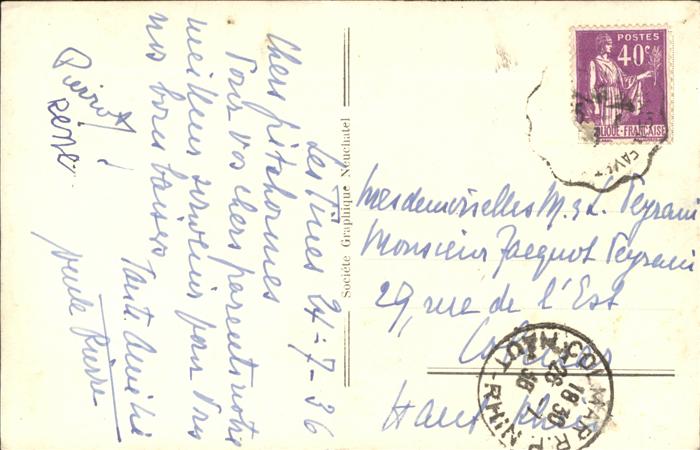 Les Pines 24-7-36
Chers pitchounes
Pour vos chers parents notre
meilleur souvenir pour vous
nos bons baisers
Tante Amélie
Pierrot
René
oncle Pierre
Société Graphique Neuchatel
POSTES
40c
BLIQUE-FRANÇAISE
Mesdemoiselles M. & L. Peyrani
Monsieur Jacquot Peyrani
29, rue de l'Est
Colmar
Haut Rhin
COLMAR R.P.
18 30
26 - 7
36
HAUT-RHIN